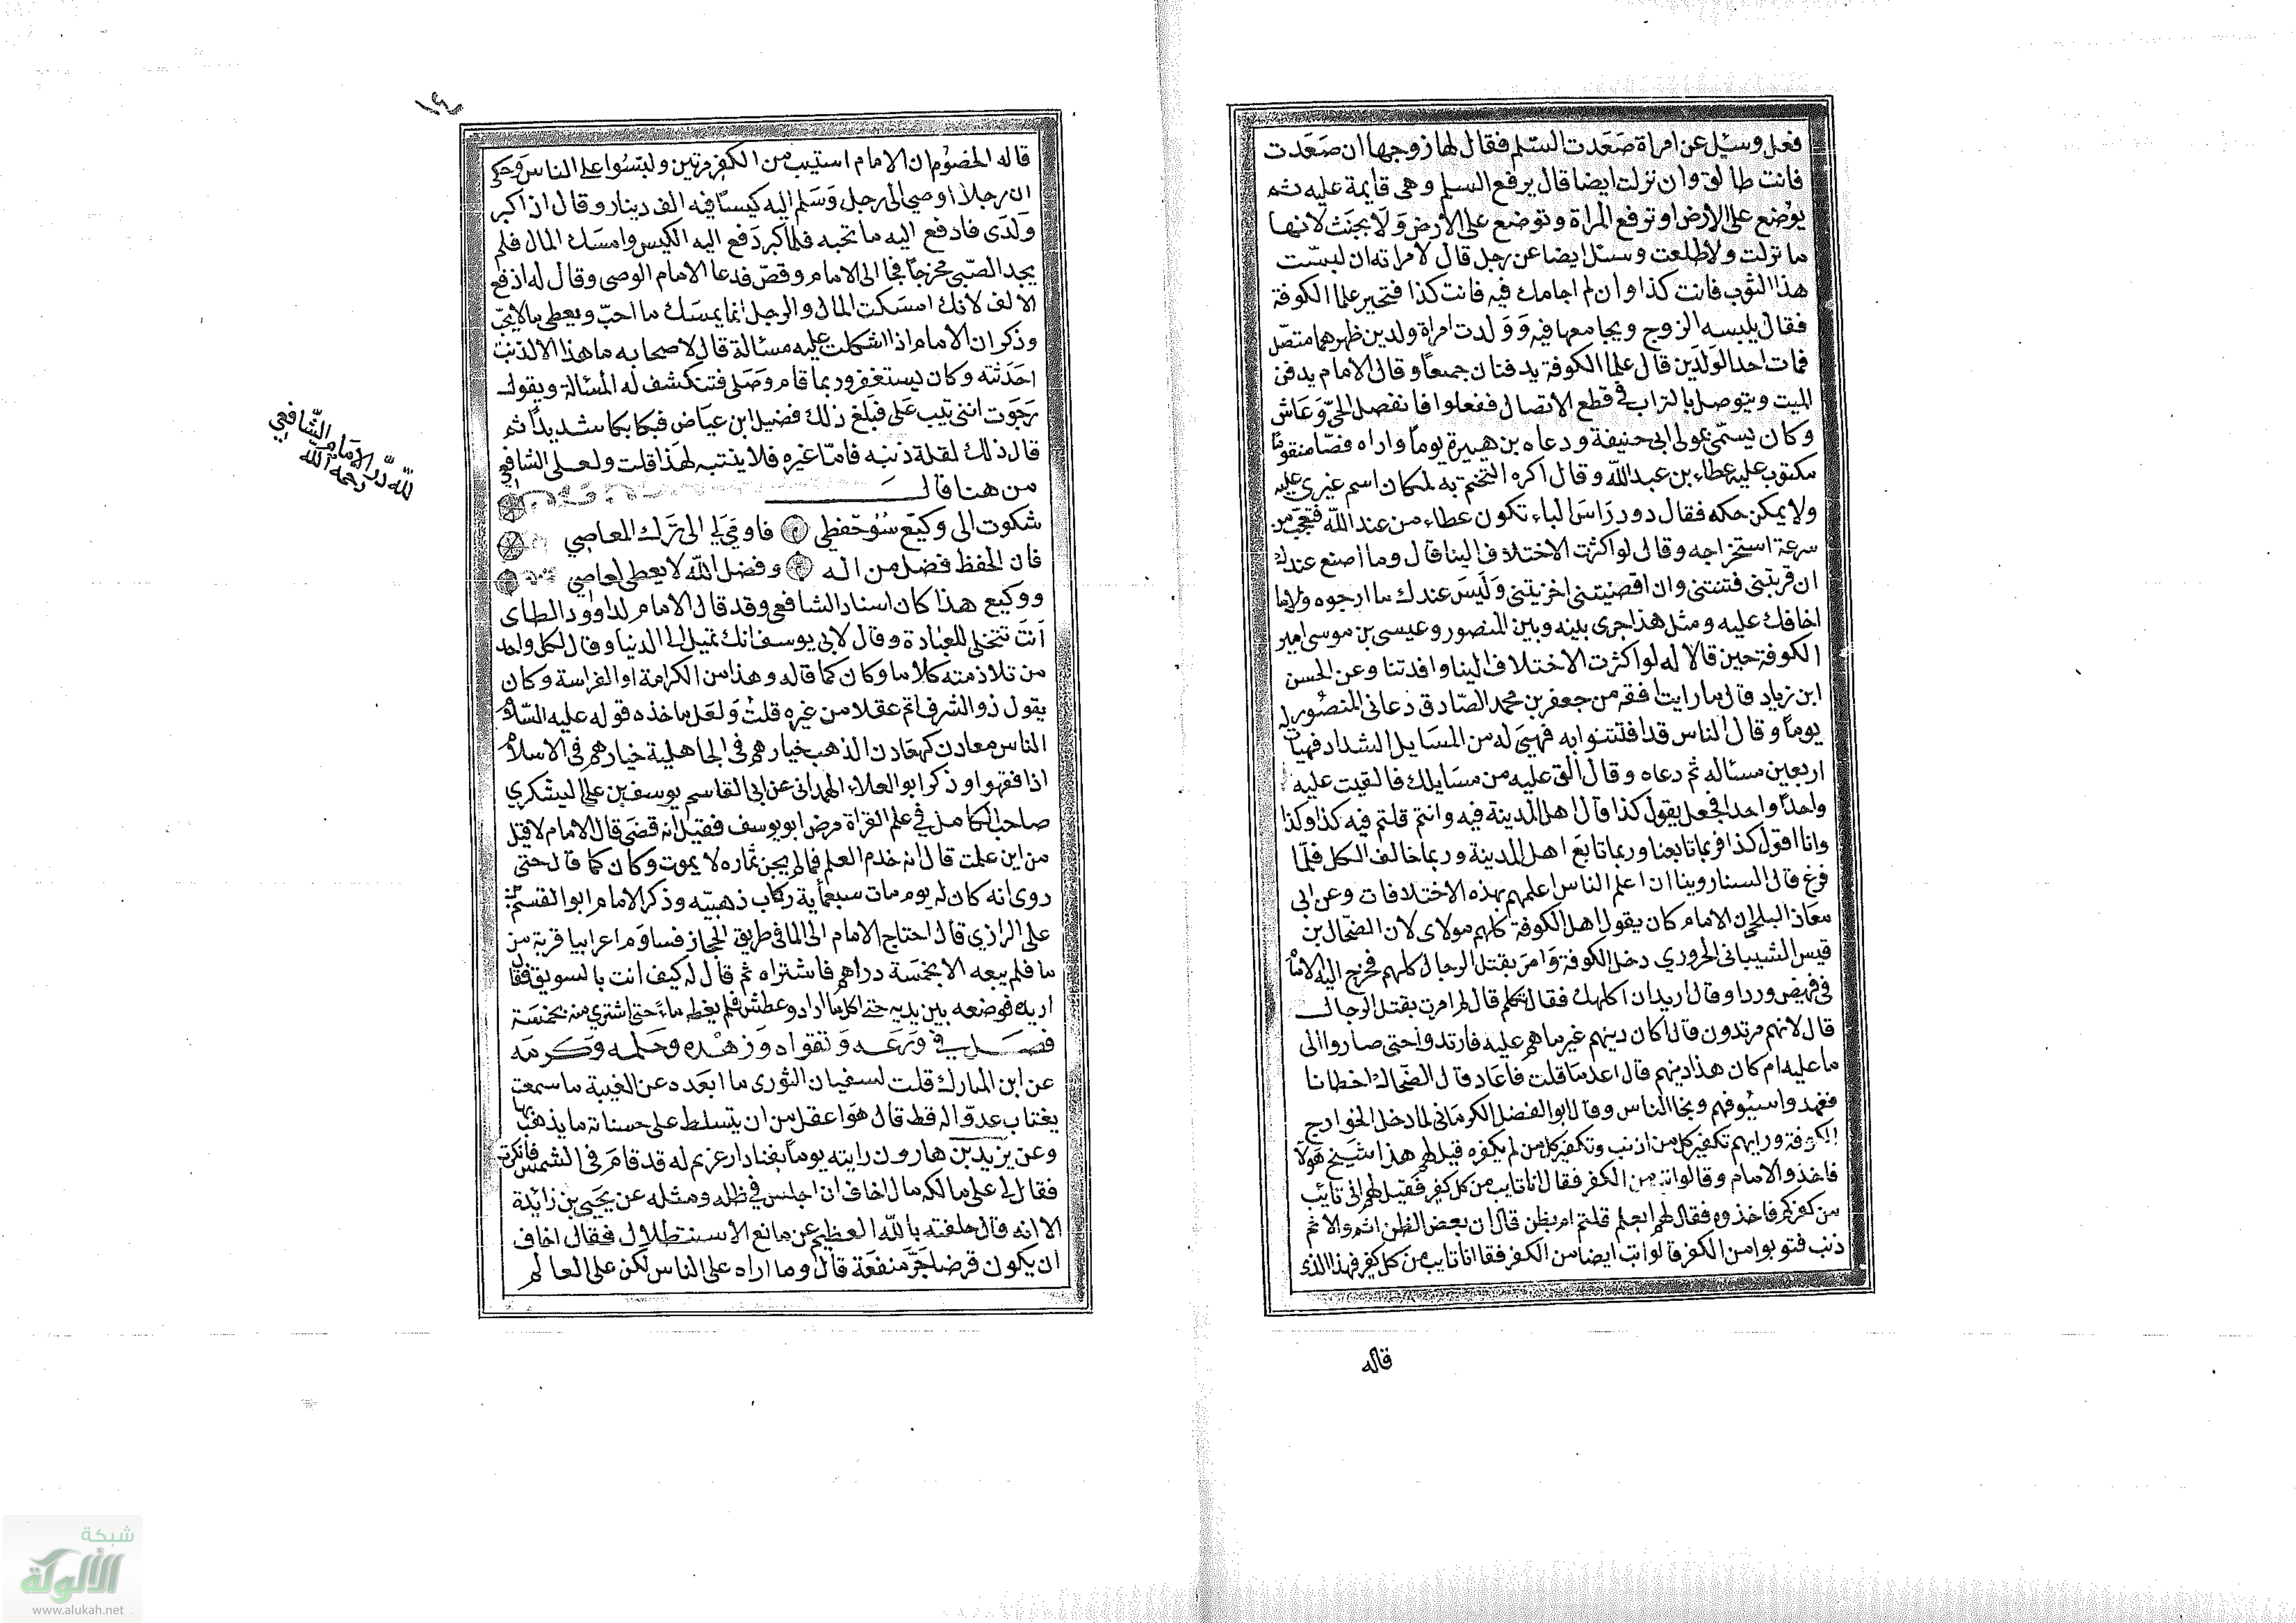 فعل وسئل عن امراة صعدت السلم فقال لها زوجها ان صعدت
فانت طالق وان نزلت ايضا قال يرفع السلم وهي قايمة عليه ثم
يوضع على الارض او ترفع المراة وتوضع على الارض ولا يحنث لانها
ما نزلت ولا طلعت وسئل ايضا عن رجل قال لامراته ان لبست
هذا الثوب فانت كذا وان لم اجامعك فيه فانت كذا فتحير علما الكوفة
فقال يلبسه الزوج ويجامعها فيه وولدت امراة ولدين ظهرهما متصل
فمات احد الولدين قال علما الكوفة يدفنان جميعا وقال الامام يدفن
الميت ويتوصل بالتراب في قطع الاتصال ففعلوا فانفصل الحي وعاش
وكان يسمى بمولى ابي حنيفة ودعاه بن هبيرة يوما واراه فصا منقوشا
مكتوب عليه عطاء بن عبد الله وقال اكره التختم به لمكان اسم غيري عليه
ولا يمكن حكه فقال دور راس الباء تكون عطاء من عند الله فتعجب من
سرعة استخراجه وقال لو اكثرت الاختلاف الينا قال وما اصنع عندك
ان قربتني فتنتني وان اقصيتني اخزيتني وليس عندك ما ارجوه ولا ما
اخافك عليه ومثل هذا جرى بينه وبين المنصور وعيسى بن موسى امير
الكوفة حين قالا له لو اكثرت الاختلاف الينا وافدتنا وعن الحسن
ابن زياد قال ما رايت افقه من جعفر بن محمد الصادق دعاني المنصور له
يوما وقال الناس قد افتتنوا به فهيئ له من المسايل الشداد فهيات
اربعين مسئاله ثم دعاه وقال الق عليه من مسايلك فالقيت عليه
واحدا واحدا فجعل يقول كذا قال اهل المدينة فيه وانتم قلتم فيه كذا وكذا
وانا اقول كذا فربما تابعنا وربما تابع اهل المدينة وربما خالف الكل فلما
فرغ قال السنا روينا ان اعلم الناس اعلمهم بهذه الاختلافات وعن ابي
معاذ البلخي ان الامام كان يقول اهل الكوفة كلهم مولاى لان الضحاك بن
قيس الشيباني الحروري دخل الكوفة وامر بقتل الرجال كلهم فخرج اليه الامام
في قميص وردا وقال اريد ان اكلمك فقال تكلم قال لم امرت بقتل الرجال
قال لانهم مرتدون قال اكان دينهم غير ما هم عليه فارتدوا حتى صاروا الى
ما عليه ام كان هذا دينهم قال اعد ما قلت فاعاد قال الضحاك اخطانا
فغمدوا سيوفهم ونجا الناس وقال ابو الفضل الكرماني لما دخل الخوارج
الكوفة ورايهم تكفير كل من اذنب وتكفير كل من لم يكفره قيل لهم هذا شيخ هولا
فاخذوا الامام وقالوا تب من الكفر فقال انا تايب من كل كفر فقيل لهم انه تايب
من كفركم فاخذوه فقال لهم ابعلم قلتم ام بظن قال ان بعض الظن اثم والاثم
ذنب فتوبوا من الكفر قالوا تب ايضا من الكفر فقال انا تايب من كل كفر فهذا الذي
قاله
١٤
قاله الخصوم ان الامام استيب من الكفر مرتين ولبسوا على الناس وحكى
ان رجلا اوصى الى رجل وسلم اليه كيسا فيه الف دينار وقال اذا كبر
ولدى فادفع اليه ما تحبه فلما كبر دفع اليه الكيس وامسك المال فلم
يجد الصبي مخرجا فجا الى الامام وقص فدعا الامام الوصي وقال له ادفع
الالف لانك امسكت المال والرجل انما يمسك ما احب ويعطي مالا يحب
وذكر ان الامام اذا اشكلت عليه مسئالة قال لاصحابه ما هذا الا لذنب
احدثته وكان يستغفر وربما قام وصلى فتنكشف له المسئالة ويقول
رجوت انني تيب على فبلغ ذلك فضيل ابن عياض فبكا بكا شديدا ثم
قال ذلك لقلة ذنبه فاما غيره فلا ينتبه لهذا قلت ولعل الشافعي
من هنا قال
شكوت الى وكيع سوء حفظي فاومى لي الى ترك المعاصي
فان الحفظ فضل من اله وفضل الله لا يعطى لعاصي
ووكيع هذا كان استاد الشافعي وقد قال الامام لداوود الطاى
انت تتخلى للعبادة وقال لابي يوسف انك تميل الى الدنيا وقال لكل واحد
من تلاذمته كلاما وكان كما قاله وهذا من الكرامة او الفراسة وكان
يقول ذو الشرف اتم عقلا من غيره قلت ولعل ماخذه قوله عليه السلام
الناس معادن كمعادن الذهب خيارهم في الجاهلية خيارهم في الاسلام
اذا فقهوا وذكر ابو العلاء الهمداني عن ابي القاسم يوسف بن على اليشكري
صاحب الكامل في علم القراة مرض ابو يوسف فقيل انه قضى قال الامام لا قيل
من اين علمت قال انه خدم العلم فما لم يجن ثماره لا يموت وكان كما قال حتى
روى انه كان له يوم مات سبعماية ركاب ذهبيه وذكر الامام ابو القسم بن
على الرازي قال احتاج الامام الى الما في طريق الحجاز فساوم اعرابيا قربة من
ما فلم يبعه الا بخمسة دراهم فاشتراه ثم قال له كيف انت بالسويق فقال
اريده فوضعه بين يديه حتى اكل ما اراد وعطش فلم يعطه ماء حتى اشترى منه بخمسة
فصل في ورعه وتقواه وزهده وحلمه وكرمه
عن ابن المبارك قلت لسفيان الثورى ما ابعده عن الغيبة ما سمعته
يغتاب عدوا له قط قال هو اعقل من ان يتسلط على حسناته ما يذهبها
وعن يزيد بن هارون رايته يوما بفنا دار غريم له قد قام في الشمس فانكرته
فقال لي على مالكه مال اخاف ان اجلس في ظله ومثله عن يحيى بن زائدة
الا انه قال حلفته بالله العظيم عن مانع الاستظلال فقال اخاف
ان يكون قرضا جر منفعة قال وما اراه على الناس لكن على العالم
لله در الامام الشافعي
رحمه الله
شبكة
الألوكة
www.alukah.net